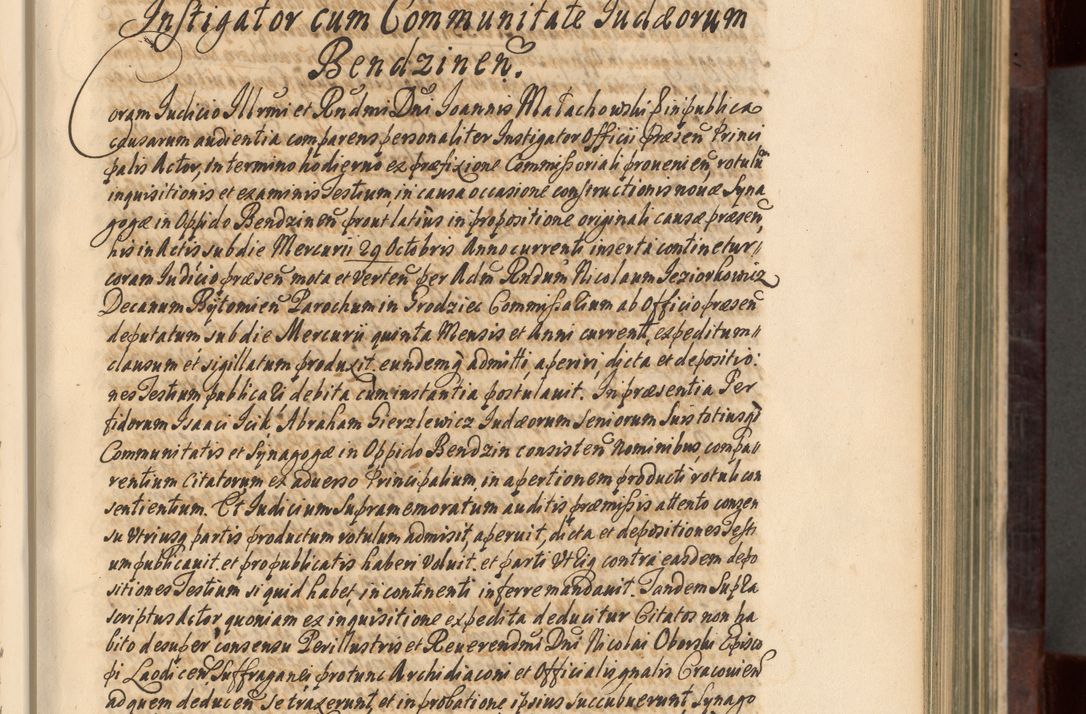 Instigator cum Communitate Judæorum
Bendzineñ.
Coram Judicio Illrmi et Rndmi Dni Joannis Małachowski Epi in publica
causarum audientia comparens personaliter Instigator Officii præseñ Princi
palis Actor, In termino hodierno ex præfixione Commissoriali provenieñ, rotulũ
inquisitionis et examinis Testium in causa occasione constructionis novæ Syna
gogæ in Oppido Bendzineñ prout latius in propositione originali causæ præseñ
his in Actis sub die Mercurii 29 Octobris Anno currenti inserta continetur,
coram Judicio præseñ mota et verteñ per Adm Rndum Nicolaum Jeziorkowicz
Decanum Bytomieñ Parochum in Grodziec Commissalium ab Officio præseñ
deputatum sub die Mercurii quinta Mensis et Anni current, expeditum
clausum et sigillatum produxit, eundemq admitti, aperiri, dicta et depositio:
nes Testium publicari debita cum instantia postulavit. In præsentia Per
fidorum Isaaci Icik Abraham Gierzlewicz Judæorum Seniorum Suis totiusq
Communitatis et Synagogæ in Oppido Bendzin consisteñ Nominibus compa
rentium Citatorum ex adverso Principalium in apertionem producti rotuli con
sentientium. Et Judicium Supramemoratum auditis præmissis attento consen
su utriusq partis productum rotulum admisit, aperuit, dicta et depositiones Testi
um publicavit, et pro publicatis haberi voluit, et parti ut Eiq contra easdem depo
sitiones Testium si quid habet, in continenti inferre mandavit. Tandem Supra
scriptus Actor quoniam ex inquisitione expedita deducitur Citatos non ha
bito desuper consensu Perillustris et Reverendmi Dni Nicolai Oborski Episco
pi Laodiceñ Suffraganei pro tunc Archidiaconi et Officialis gnalis Cracovieñ
ad quem deduceñ se traxerunt, et in probatione ipsius succubuerunt, Synago